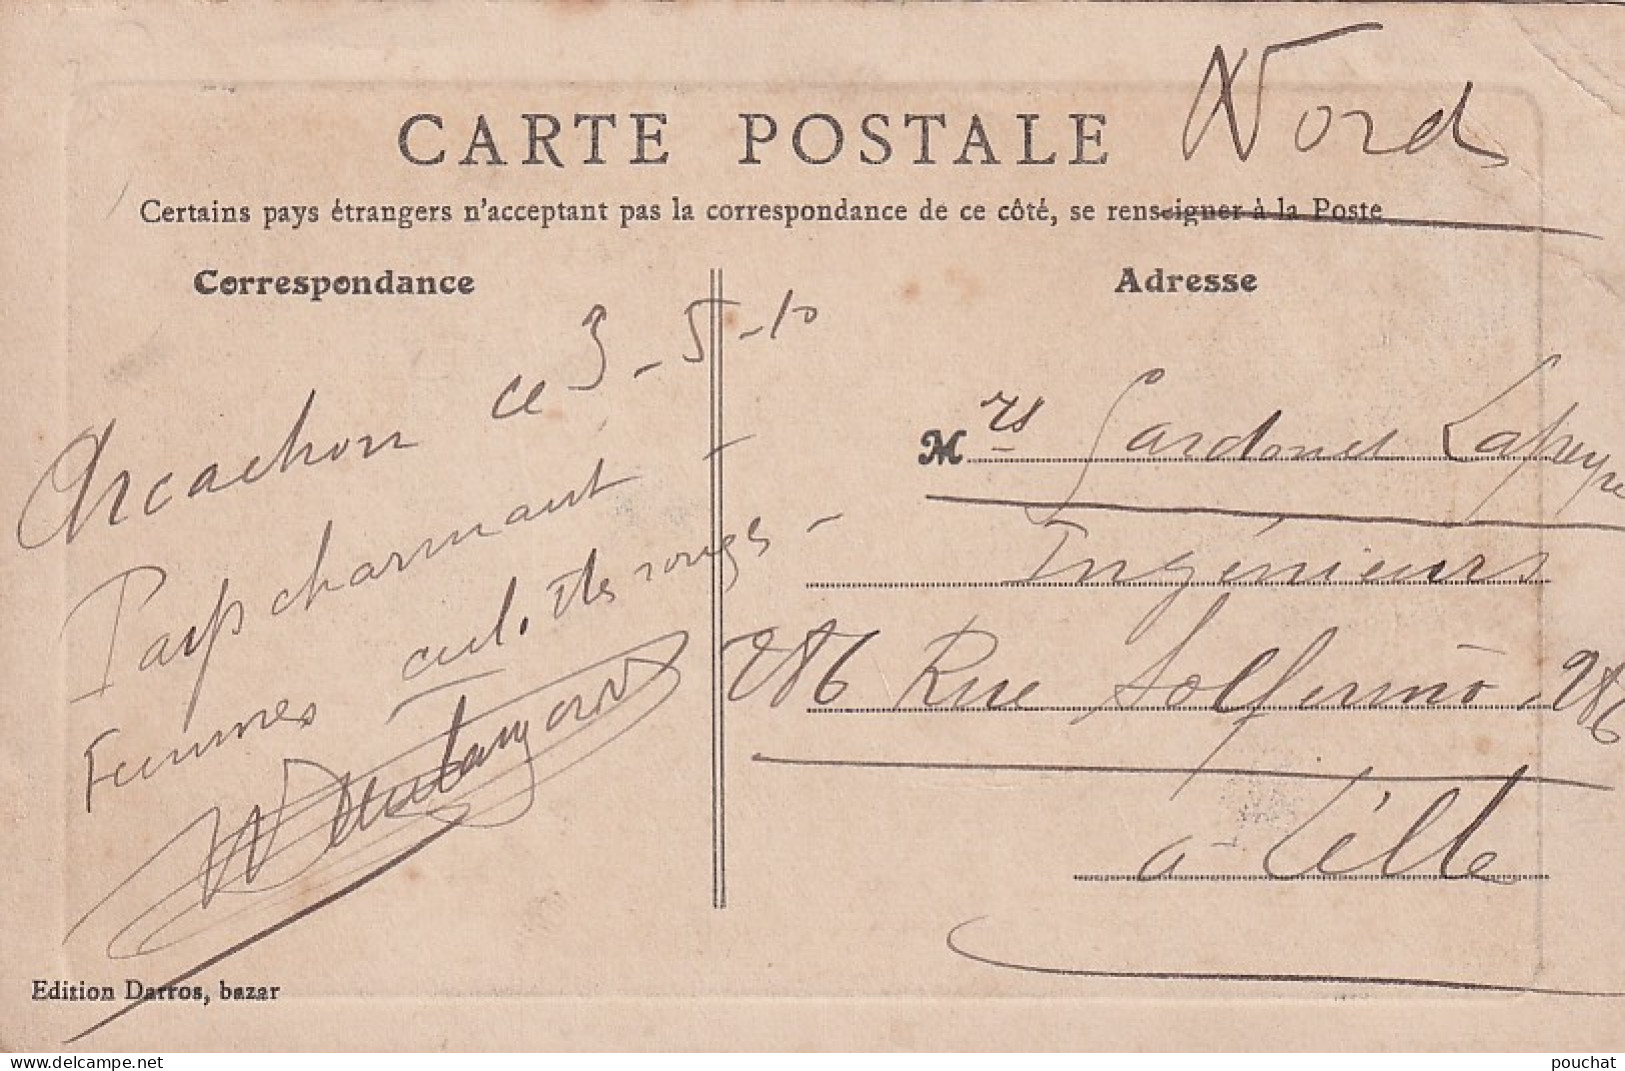 CARTE POSTALE
Nord
Certains pays étrangers n'acceptant pas la correspondance de ce côté, se renseigner à la Poste
Correspondance
Adresse
Arcachon ce 3-5-10
Pays charmant -
Femmes cul. rouges -
Mrs Gardonet Lapeyre
Ingénieurs
286 Rue Solferino 286
a Lille
Edition Darros, bazar
www.delcampe.net
pouchat